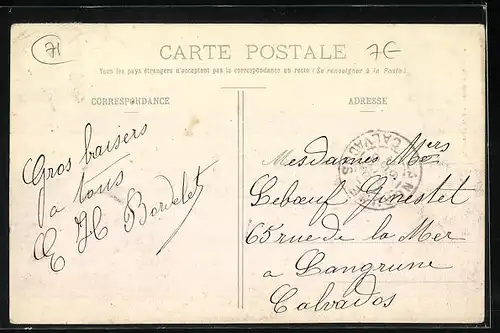 71
CARTE POSTALE
7E
Tous les pays étrangers n'acceptent pas la correspondance au recto (Se renseigner à la Poste)
CORRESPONDANCE
ADRESSE
Gros baisers
a tous
E H Bordelet
CALVADOS
Mesdames
Leboeuf Ginestet
65 rue de la Mer
a Langrune
Calvados